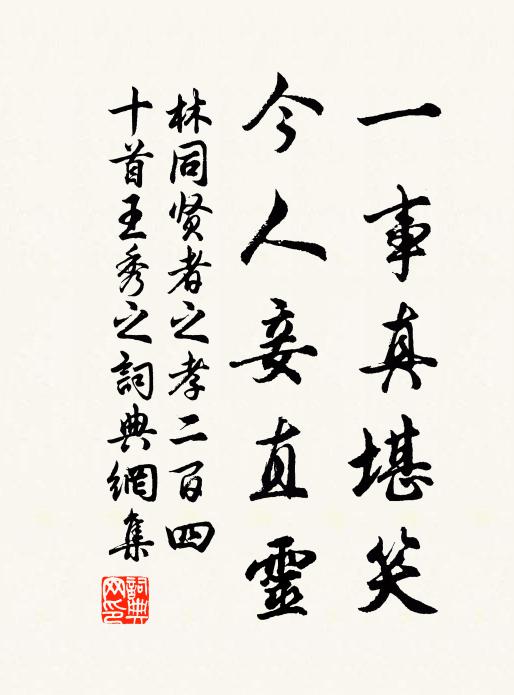 一事真堪笑
今人妾直靈
林同贤者之孝二百四
十首王秀之詞典網集
詞典網印